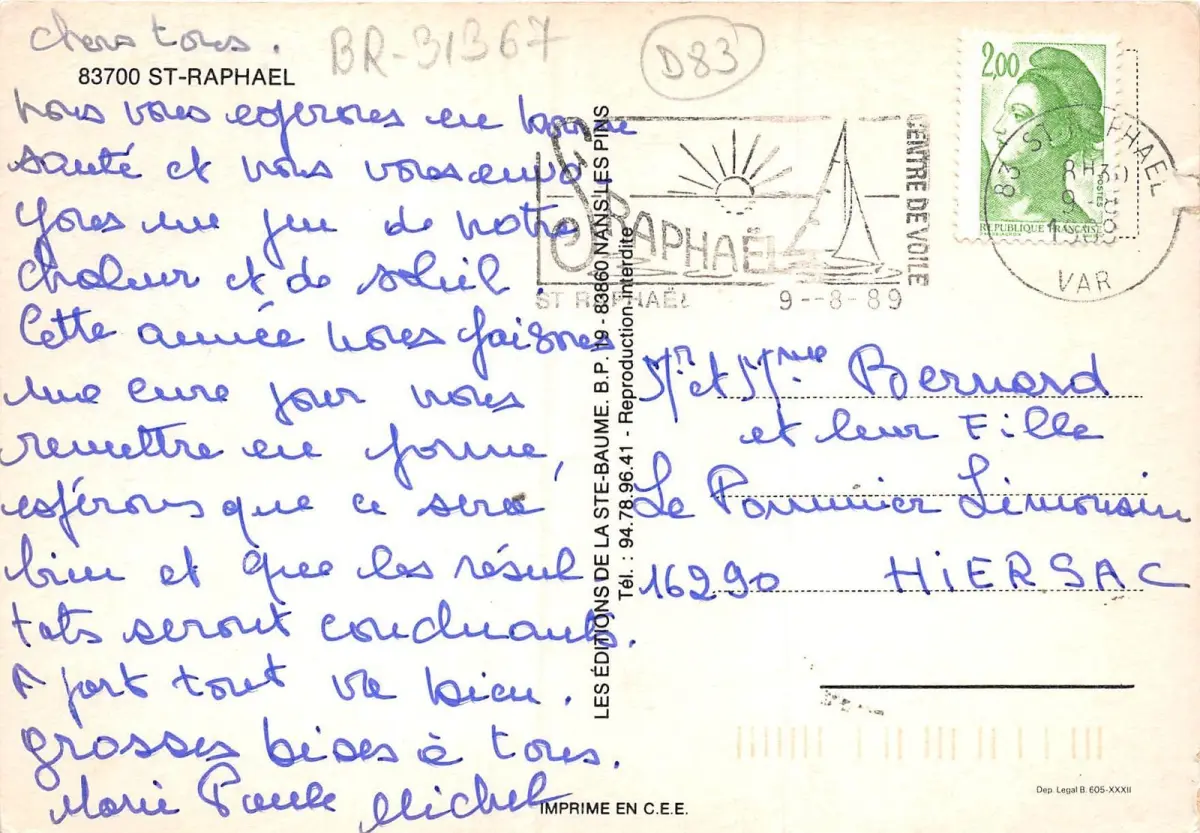 chers tous.
BR-31367
D83
83700 ST-RAPHAEL
Nous vous espérons en bonne
santé et nous vous envo
yons un peu de notre
chaleur et de soleil.
Cette année nous faisons
une cure pour nous
remettre en forme,
espérons que ce sera
bien et que les résul
tats seront concluants.
A part tout va bien.
grosses bises à tous.
Marie Paule Michel
LES ÉDITIONS DE LA STE-BAUME. B.P. 19 - 83860 NANS LES PINS
Tél. : 94.78.96.41 - Reproduction interdite
IMPRIME EN C.E.E.
ST RAPHAËL
CENTRE DE VOILE
ST RAPHAËL 9--8-89
2,00
POSTES
REPUBLIQUE FRANCAISE
83 ST RAPHAEL
VAR
Mr et Mme Bernard
et leur Fille
Le Pommier Limousin
16290 HiERSAC
Dep. Legal B. 605-XXXII